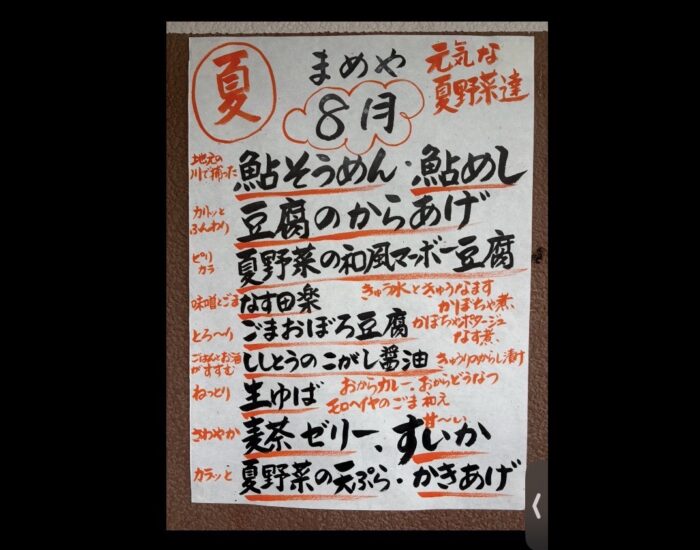 夏
まめや
8月
元気な
夏野菜達
地元の
川で捕った
鮎そうめん・鮎めし
カリッと
ふんわり
豆腐のからあげ
ピリ
カラ
夏野菜の和風マーボー豆腐
味噌とごま
なす田楽
きゅうりときゅうなます
かぼちゃ煮、
とろ〜り
ごまおぼろ豆腐
かぼちゃポタージュ
なす煮、
ごはんとお酒
がすすむ
ししとうのこがし醤油
きゅうりのからし漬け
ねっとり
生ゆば
おからカレー、おからどうなつ
モロヘイヤのごま和え
さわやか
麦茶ゼリー、
甘〜い
すいか
カラッと
夏野菜の天ぷら・かきあげ